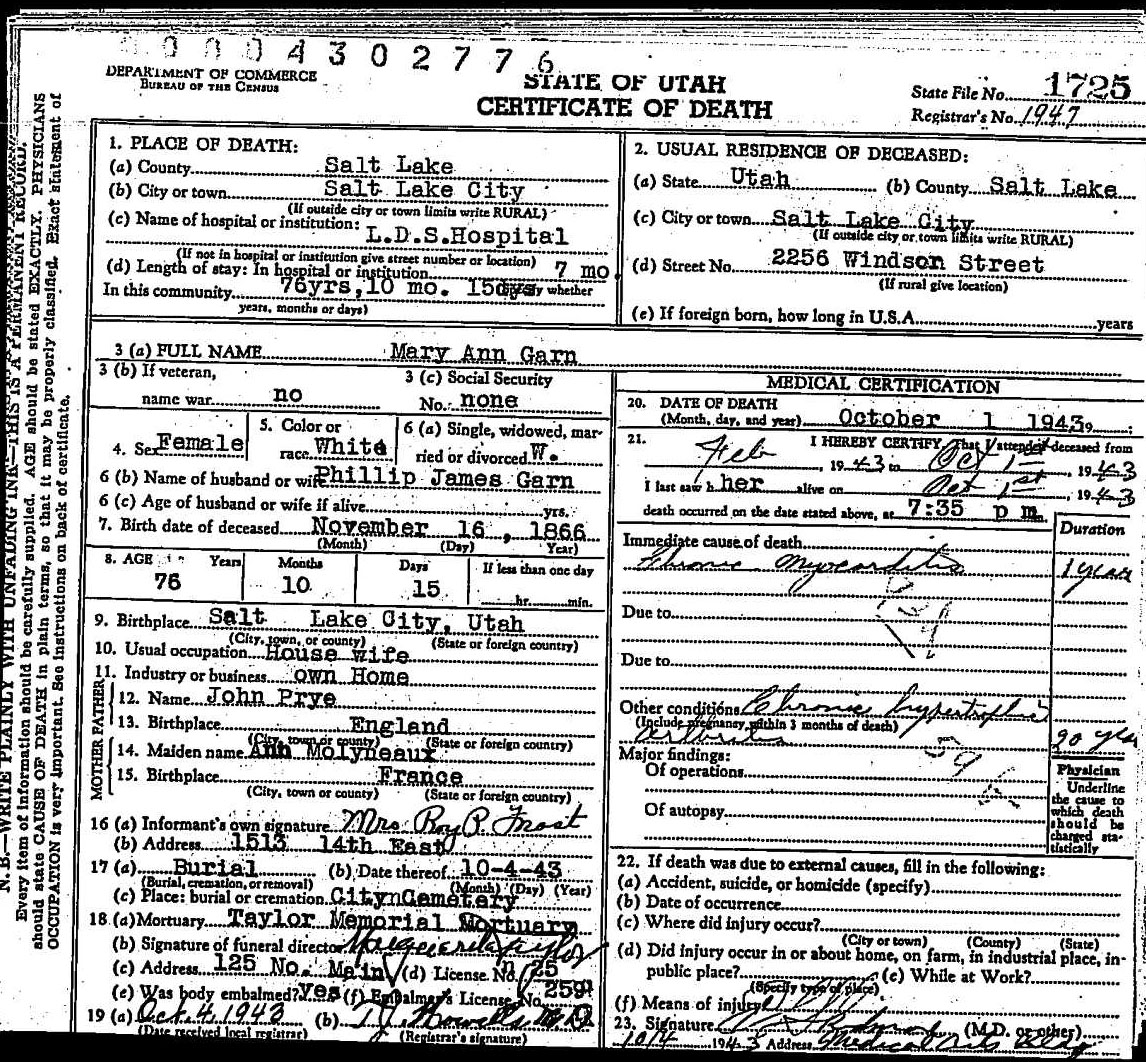 0004302776
DEPARTMENT OF COMMERCE
BUREAU OF THE CENSUS
STATE OF UTAH
CERTIFICATE OF DEATH
State File No. 1725
Registrar's No. 1947
N. B.—WRITE PLAINLY WITH UNFADING INK—THIS IS A PERMANENT RECORD.
Every item of information should be carefully supplied. AGE should be stated EXACTLY. PHYSICIANS
should state CAUSE OF DEATH in plain terms, so that it may be properly classified. Exact statement of
OCCUPATION is very important. See instructions on back of certificate.
1. PLACE OF DEATH:
(a) County Salt Lake
(b) City or town Salt Lake City
(If outside city or town limits write RURAL)
(c) Name of hospital or institution:
L.D.S.Hospital
(If not in hospital or institution give street number or location)
(d) Length of stay: In hospital or institution 7 mo.
In this community 76yrs, 10 mo. 15dys whether
years, months or days)
2. USUAL RESIDENCE OF DECEASED:
(a) State Utah (b) County Salt Lake
(c) City or town Salt Lake City
(If outside city or town limits write RURAL)
(d) Street No. 2256 Windson Street
(If rural give location)
(e) If foreign born, how long in U.S.A. years
3 (a) FULL NAME Mary Ann Garn
3 (b) If veteran,
name war no
3 (c) Social Security
No. none
4. Sex Female
5. Color or
race White
6 (a) Single, widowed, mar-
ried or divorced W.
6 (b) Name of husband or wife Phillip James Garn
6 (c) Age of husband or wife if alive yrs.
7. Birth date of deceased November 16, 1866
(Month) (Day) Year)
8. AGE Years Months Days If less than one day
76 10 15 hr. min.
9. Birthplace Salt Lake City, Utah
(City, town, or county) (State or foreign country)
10. Usual occupation House wife
11. Industry or business own Home
FATHER
12. Name John Prye
13. Birthplace England
(City, town or county) (State or foreign country)
MOTHER
14. Maiden name Ann Molyneaux
15. Birthplace France
(City, town or county) (State or foreign country)
16 (a) Informant's own signature Mrs. Roy P. Frost
(b) Address 1513 14th East
17 (a) Burial (b) Date thereof 10-4-43
(Burial, cremation, or removal) (Month) (Day) (Year)
(c) Place: burial or cremation CitynCemetary
18 (a) Mortuary Taylor Memorial Mortuary
(b) Signature of funeral director Marguerite Taylor
(c) Address 125 No. Main (d) License No. 25
(e) Was body embalmed? yes (f) Embalmer's License No. 259
19 (a) Oct. 4, 1943 (b)
(Date received local registrar) (Registrar's signature)
MEDICAL CERTIFICATION
20. DATE OF DEATH
(Month, day, and year) October 1 1943
21. I HEREBY CERTIFY, That I attended deceased from
Feb, 1943 to Oct 1st, 1943
I last saw her alive on Oct 1st, 1943
death occurred on the date stated above, at 7:35 p m.
Duration
Immediate cause of death
Chronic Myocarditis 1 year
Due to
Due to
Other conditions Chronic hypertrophic
(Include pregnancy within 3 months of death)
arthritis 20 year
Major findings:
Of operations
Of autopsy
Physician
Underline
the cause to
which death
should be
charged sta-
tistically
22. If death was due to external causes, fill in the following:
(a) Accident, suicide, or homicide (specify)
(b) Date of occurrence
(c) Where did injury occur?
(City or town) (County) (State)
(d) Did injury occur in or about home, on farm, in industrial place, in-
public place? (e) While at Work?
(Specify type of place)
(f) Means of injury
23. Signature (M.D. or other)
10/4 1943 Address Medical Arts Bldg